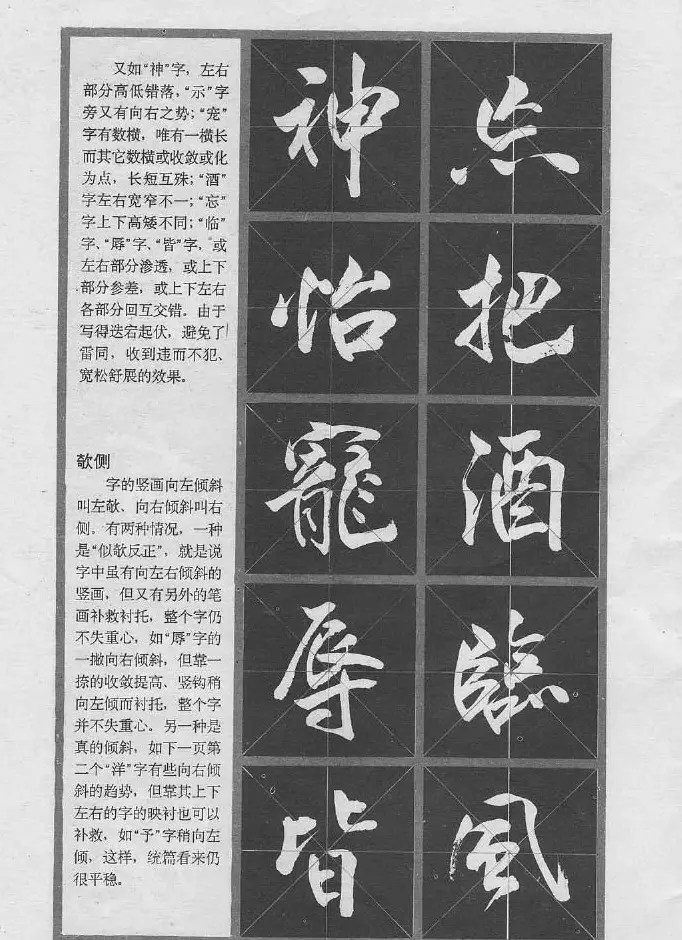 又如“神”字，左右
部分高低错落，“示”字
旁又有向右之势；“宠”
字有数横，唯有一横长
而其它数横或收敛或化
为点，长短互殊；“酒”
字左右宽窄不一；“忘”
字上下高矮不同；“临”
字、“辱”字、“皆”字，或
左右部分渗透，或上下
部分参差，或上下左右
各部分回互交错。由于
写得迭宕起伏，避免了
雷同，收到违而不犯、
宽松舒展的效果。
欹侧
字的竖画向左倾斜
叫左欹、向右倾斜叫右
侧。有两种情况，一种
是“似欹反正”，就是说
字中虽有向左右倾斜的
竖画，但又有另外的笔
画补救衬托，整个字仍
不失重心，如“辱”字的
一撇向右倾斜，但靠一
捺的收敛提高、竖钩稍
向左倾而衬托，整个字
并不失重心。另一种是
真的倾斜，如下一页第
二个“洋”字有些向右倾
斜的趋势，但靠其上下
左右的字的映衬也可以
补救，如“予”字稍向左
倾，这样，统篇看来仍
很平稳。
神怡寵辱皆
忘把酒臨風